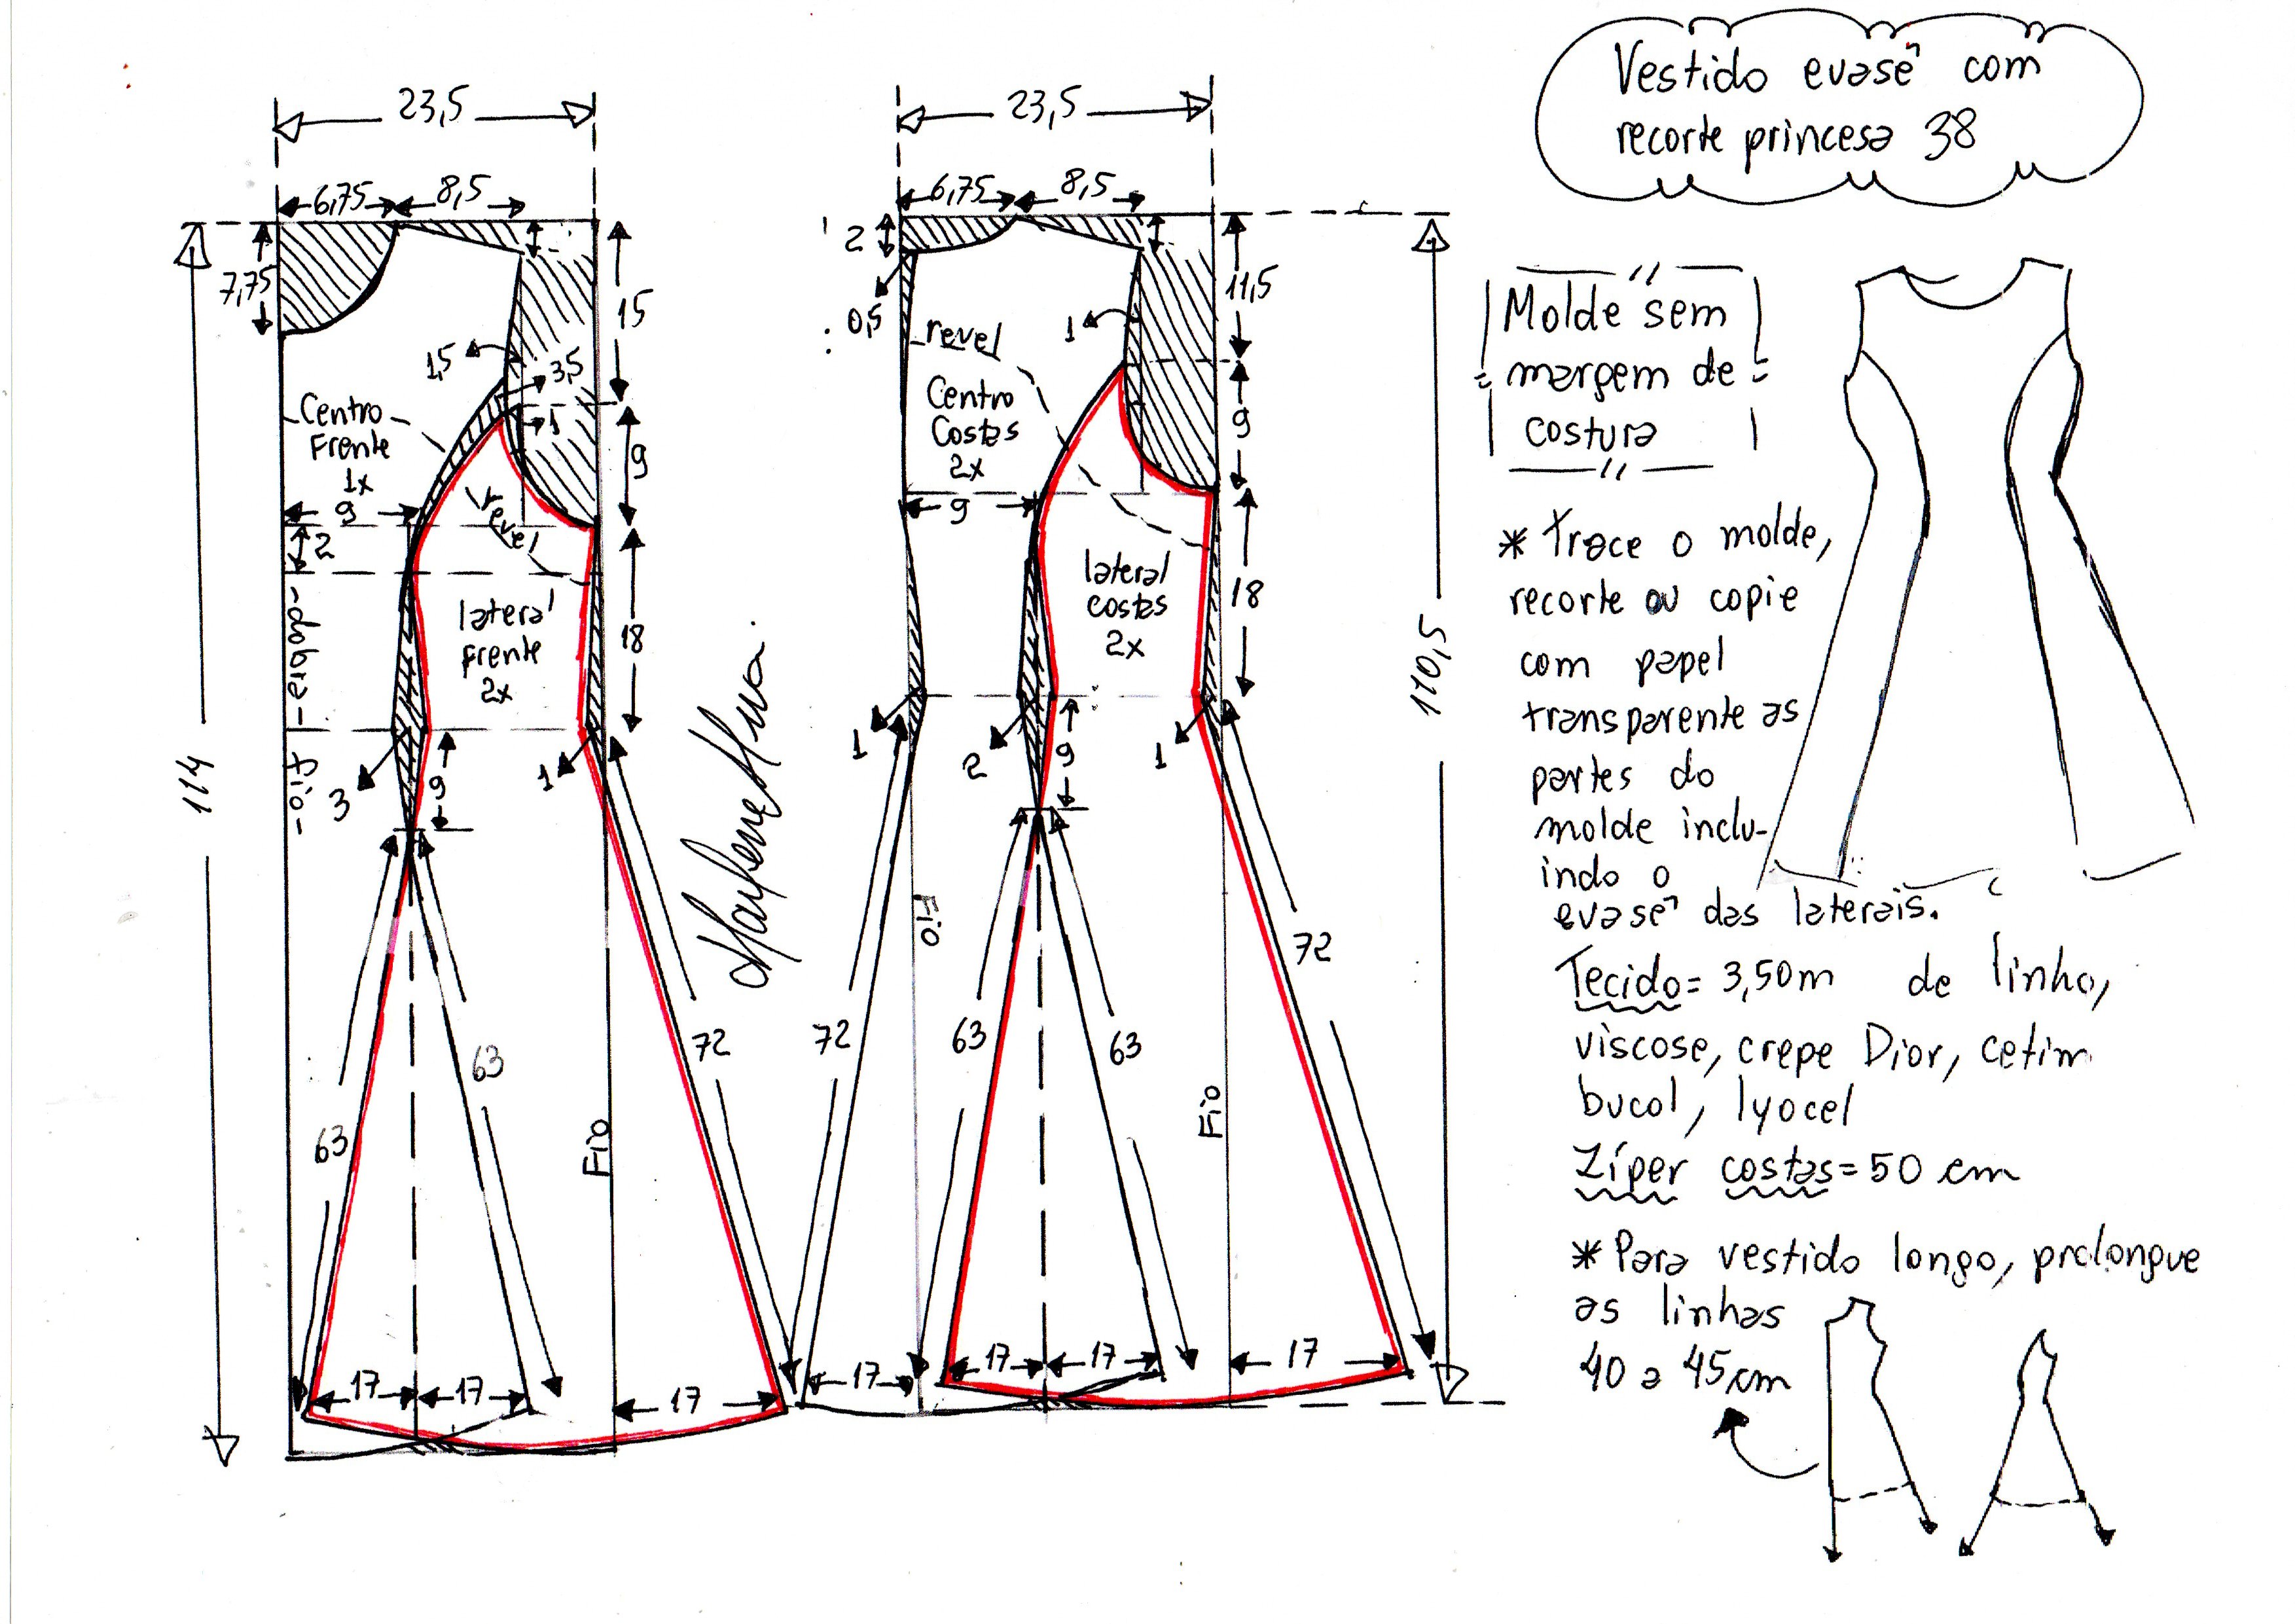 Vestido evasê com
recorte princesa 38
23,5
6,75
8,5
7,75
15
1,5
3,5
1
Centro
Frente
1x
9
9
2
revel
dobra
fio
lateral
frente
2x
18
3
1
9
114
63
63
72
Fio
17
17
17
Marlene Mukai
23,5
6,75
8,5
2
0,5
11,5
1
revel
Centro
Costas
2x
9
9
lateral
costas
2x
18
1
2
1
9
110,5
72
63
63
72
Fio
Fio
17
17
17
17
Molde sem
margem de
costura
* Trace o molde,
recorte ou copie
com papel
transparente as
partes do
molde inclu-
indo o
evasê das laterais.
Tecido = 3,50m de linho,
viscose, crepe Dior, cetim
bucol, lyocel
Zíper costas = 50 cm
* Para vestido longo, prolongue
as linhas
40 a 45cm